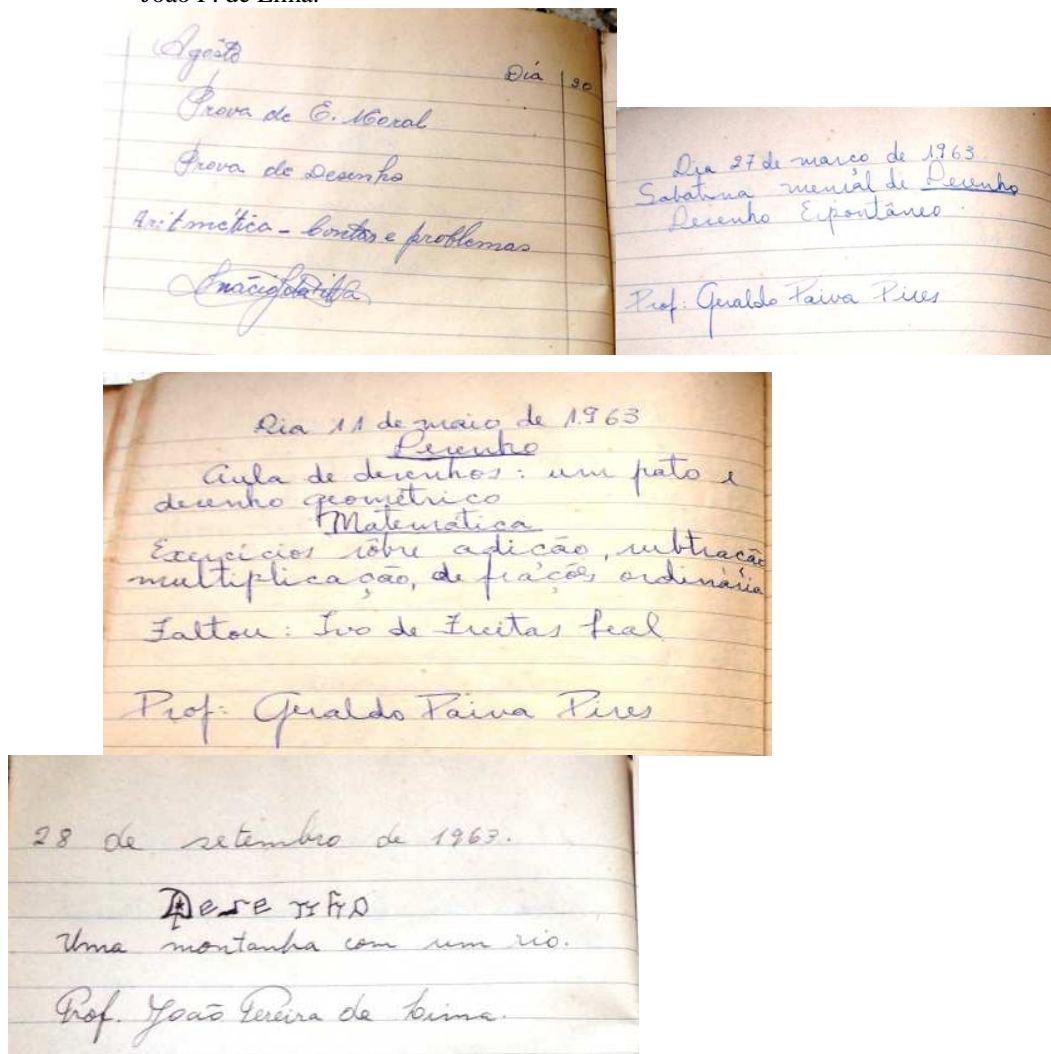 João P. de Lima.
Agôsto
Dia 30
Prova de E. Moral
Prova de Desenho
Aritmética - Contas e problemas
Dia 27 de março de 1963
Sabatina mensal de Desenho
Desenho Espontâneo.
Prof: Geraldo Paiva Pires
Dia 11 de maio de 1963
Desenho
Aula de desenhos: um pato e
desenho geométrico
Matemática
Exercícios sôbre adição, subtração
multiplicação, de frações ordinária
Faltou: Ivo de Freitas Leal
Prof: Geraldo Paiva Pires
28 de setembro de 1963.
Desenho
Uma montanha com um rio.
Prof. João Pereira de Lima.